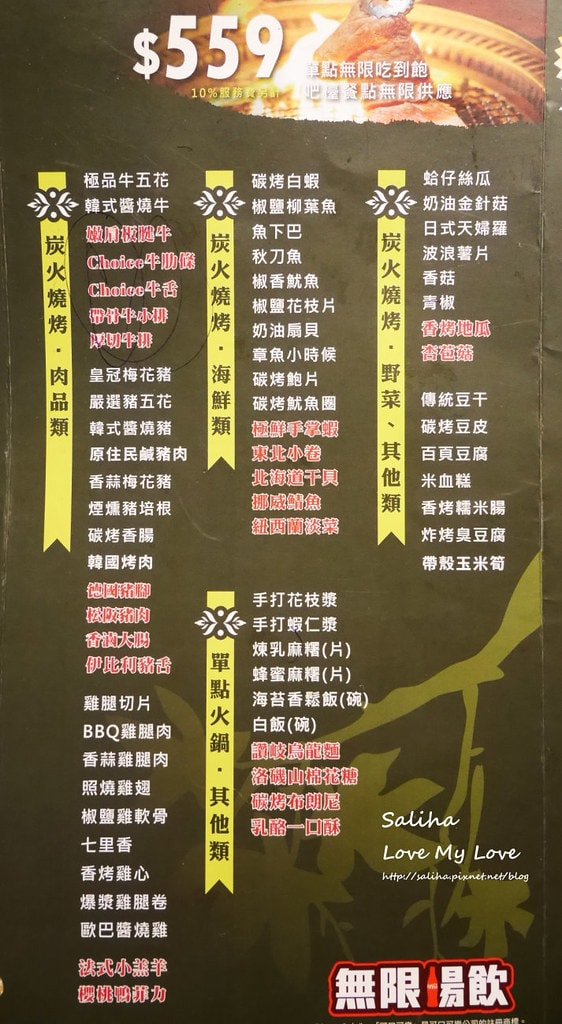 $559
單點無限吃到飽
10%服務費另計
吧檯餐點無限供應
炭火燒烤・肉品類
極品牛五花
韓式醬燒牛
嫩肩板腱牛
Choice牛肋條
Choice牛舌
帶骨牛小排
厚切牛排
皇冠梅花豬
嚴選豬五花
韓式醬燒豬
原住民鹹豬肉
香蒜梅花豬
煙燻豬培根
碳烤香腸
韓國烤肉
德國豬腳
松阪豬肉
香滷大腸
伊比利豬舌
雞腿切片
BBQ雞腿肉
香蒜雞腿肉
照燒雞翅
椒鹽雞軟骨
七里香
香烤雞心
爆漿雞腿卷
歐巴醬燒雞
法式小羔羊
櫻桃鴨菲力
炭火燒烤・海鮮類
碳烤白蝦
椒鹽柳葉魚
魚下巴
秋刀魚
椒香魷魚
椒鹽花枝片
奶油扇貝
章魚小時候
碳烤鮑片
碳烤魷魚圈
極鮮手掌蝦
東北小卷
北海道干貝
挪威鯖魚
紐西蘭淡菜
炭火燒烤・野菜、其他類
蛤仔絲瓜
奶油金針菇
日式天婦羅
波浪薯片
香菇
青椒
香烤地瓜
杏苞菇
傳統豆干
碳烤豆皮
百頁豆腐
米血糕
香烤糯米腸
炸烤臭豆腐
帶殼玉米筍
單點火鍋・其他類
手打花枝漿
手打蝦仁漿
煉乳麻糬(片)
蜂蜜麻糬(片)
海苔香鬆飯(碗)
白飯(碗)
讚岐烏龍麵
洛磯山棉花糖
碳烤布朗尼
乳酪一口酥
Saliha
Love My Love
http://saliha.pixnet.net/blog
無限暢飲